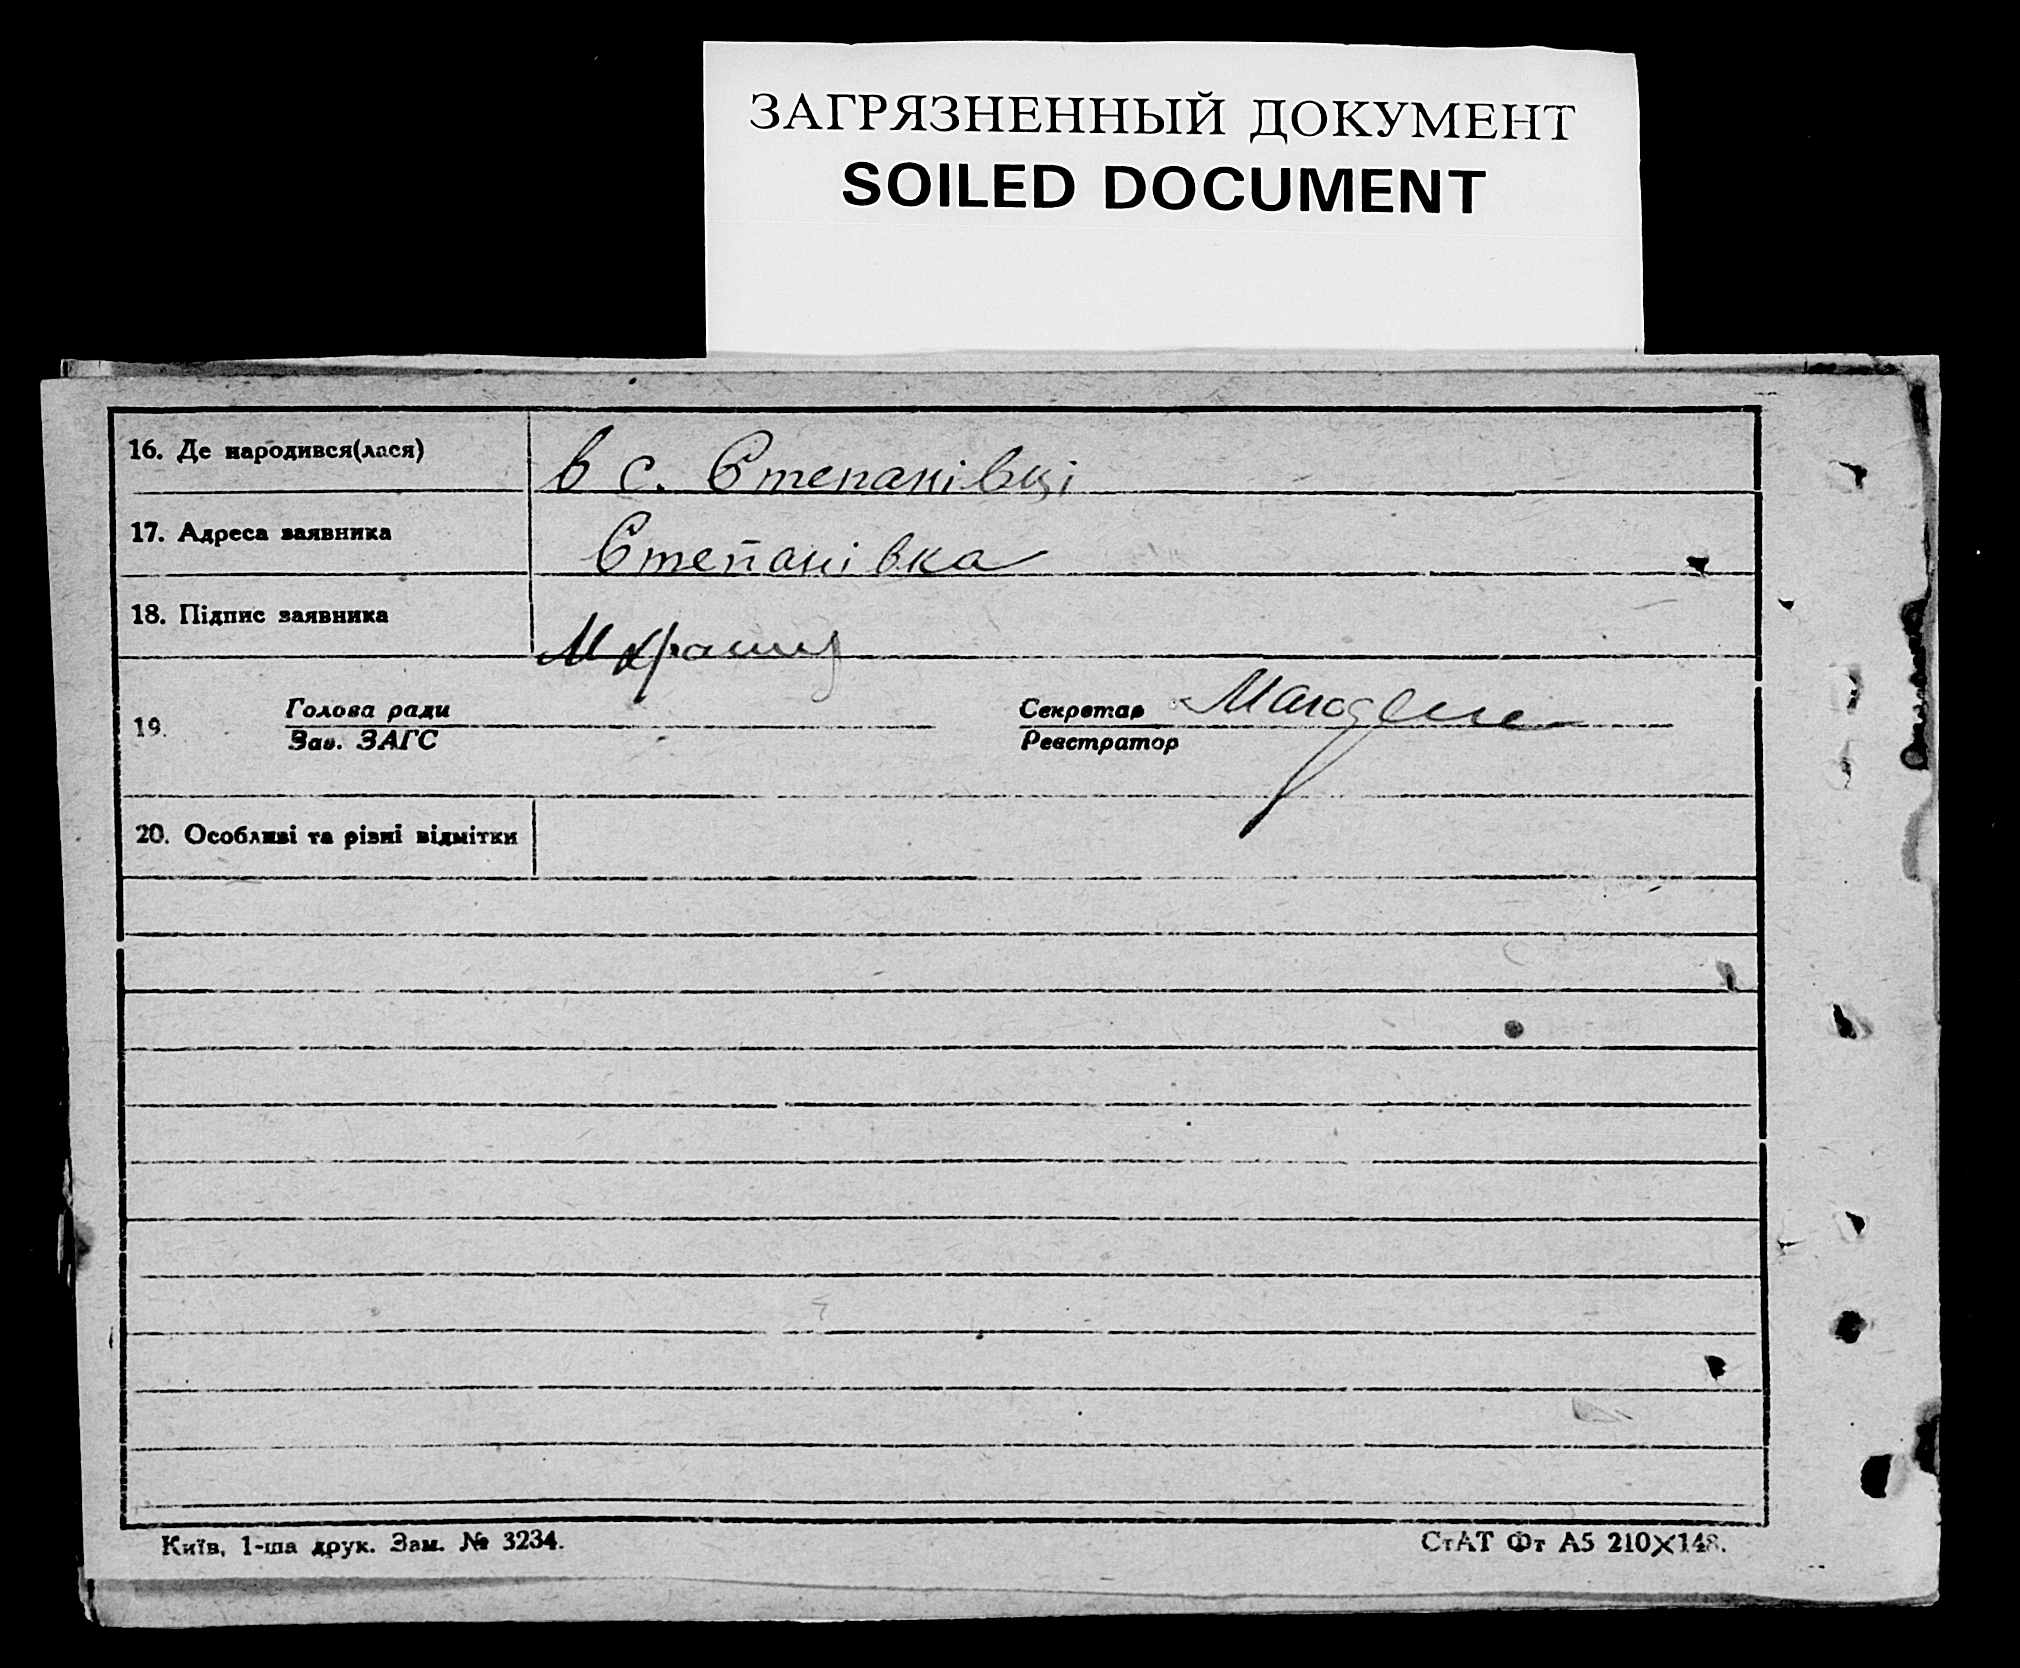 ЗАГРЯЗНЕННЫЙ ДОКУМЕНТ
SOILED DOCUMENT
16. Де народився(лася) в с. Степанівці
17. Адреса заявника Степанівка
18. Підпис заявника
19. Голова ради Секретар
Зав. ЗАГС Реєстратор
20. Особливі та різні відмітки
Київ, 1-ша друк. Зам. № 3234. СтАТ Фт А5 210×148.